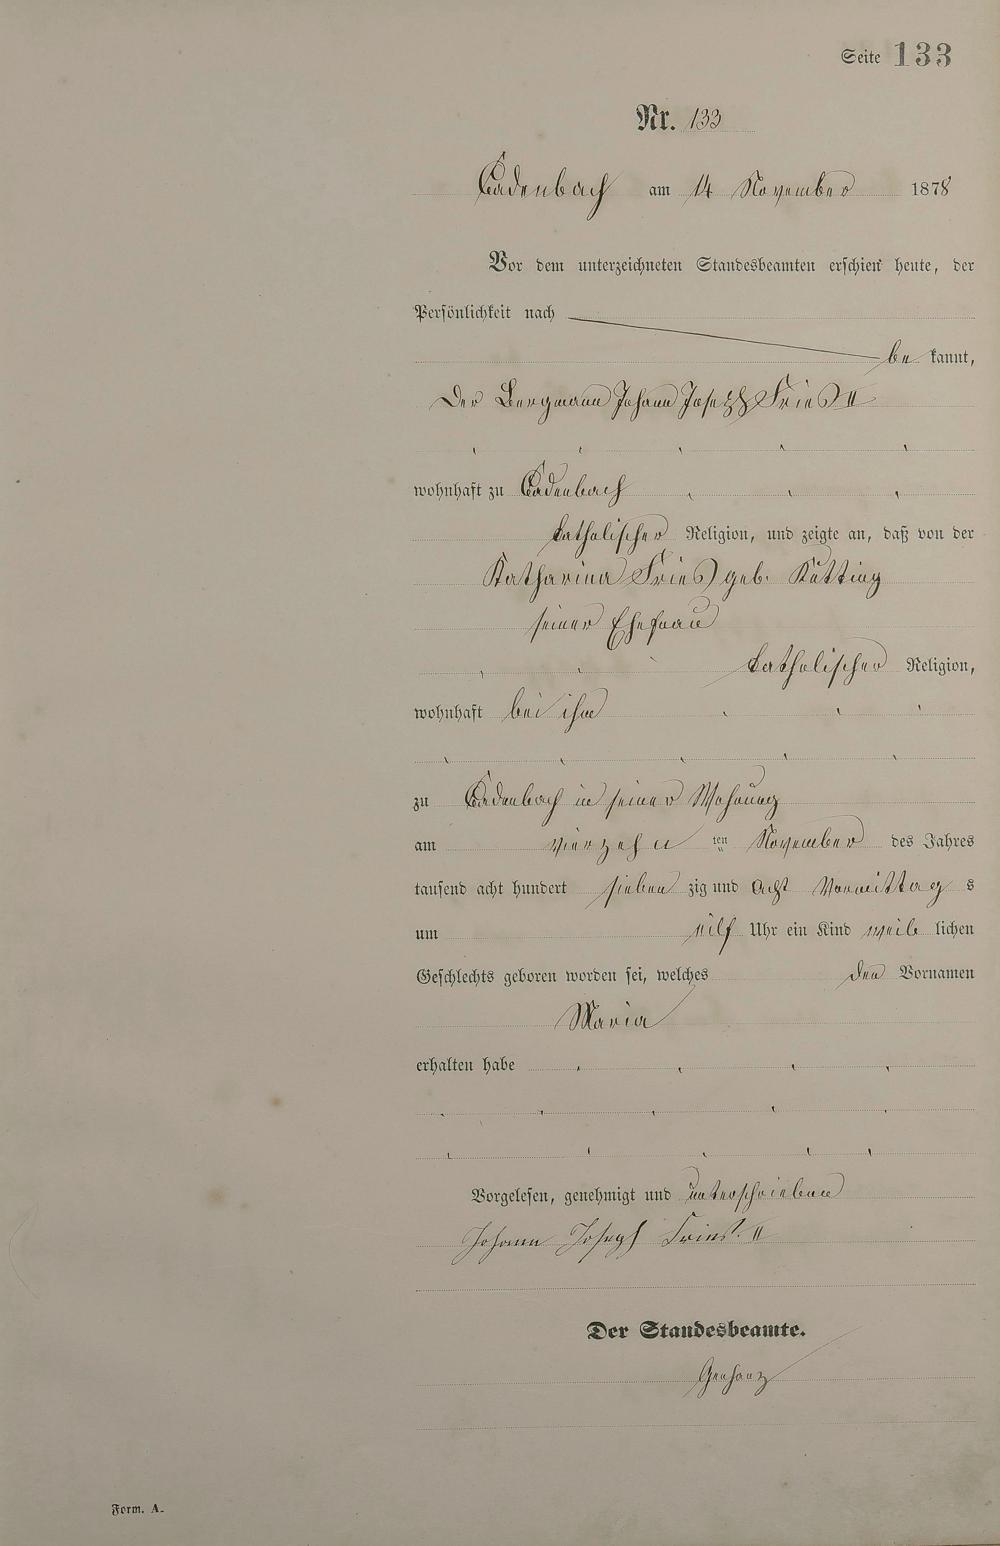 Seite 133
Nr. 133
Cadenbach am 14 November 1878
Vor dem unterzeichneten Standesbeamten erschien heute, der
Persönlichkeit nach
be kannt,
Der Bergmann Johann Joseph Fries II
wohnhaft zu Cadenbach
katholischer Religion, und zeigte an, daß von der
Katharina Fries geb. Kütting
seiner Ehefrau
katholischer Religion,
wohnhaft bei ihm
zu Cadenbach in seiner Wohnung
am vierzehn ten November des Jahres
tausend acht hundert sieben zig und acht Vormittag s
um eilf Uhr ein Kind weib lichen
Geschlechts geboren worden sei, welches den Vornamen
Maria
erhalten habe
Vorgelesen, genehmigt und unterschrieben
Johann Joseph Fries. II
Der Standesbeamte.
Gerharz
Form. A.